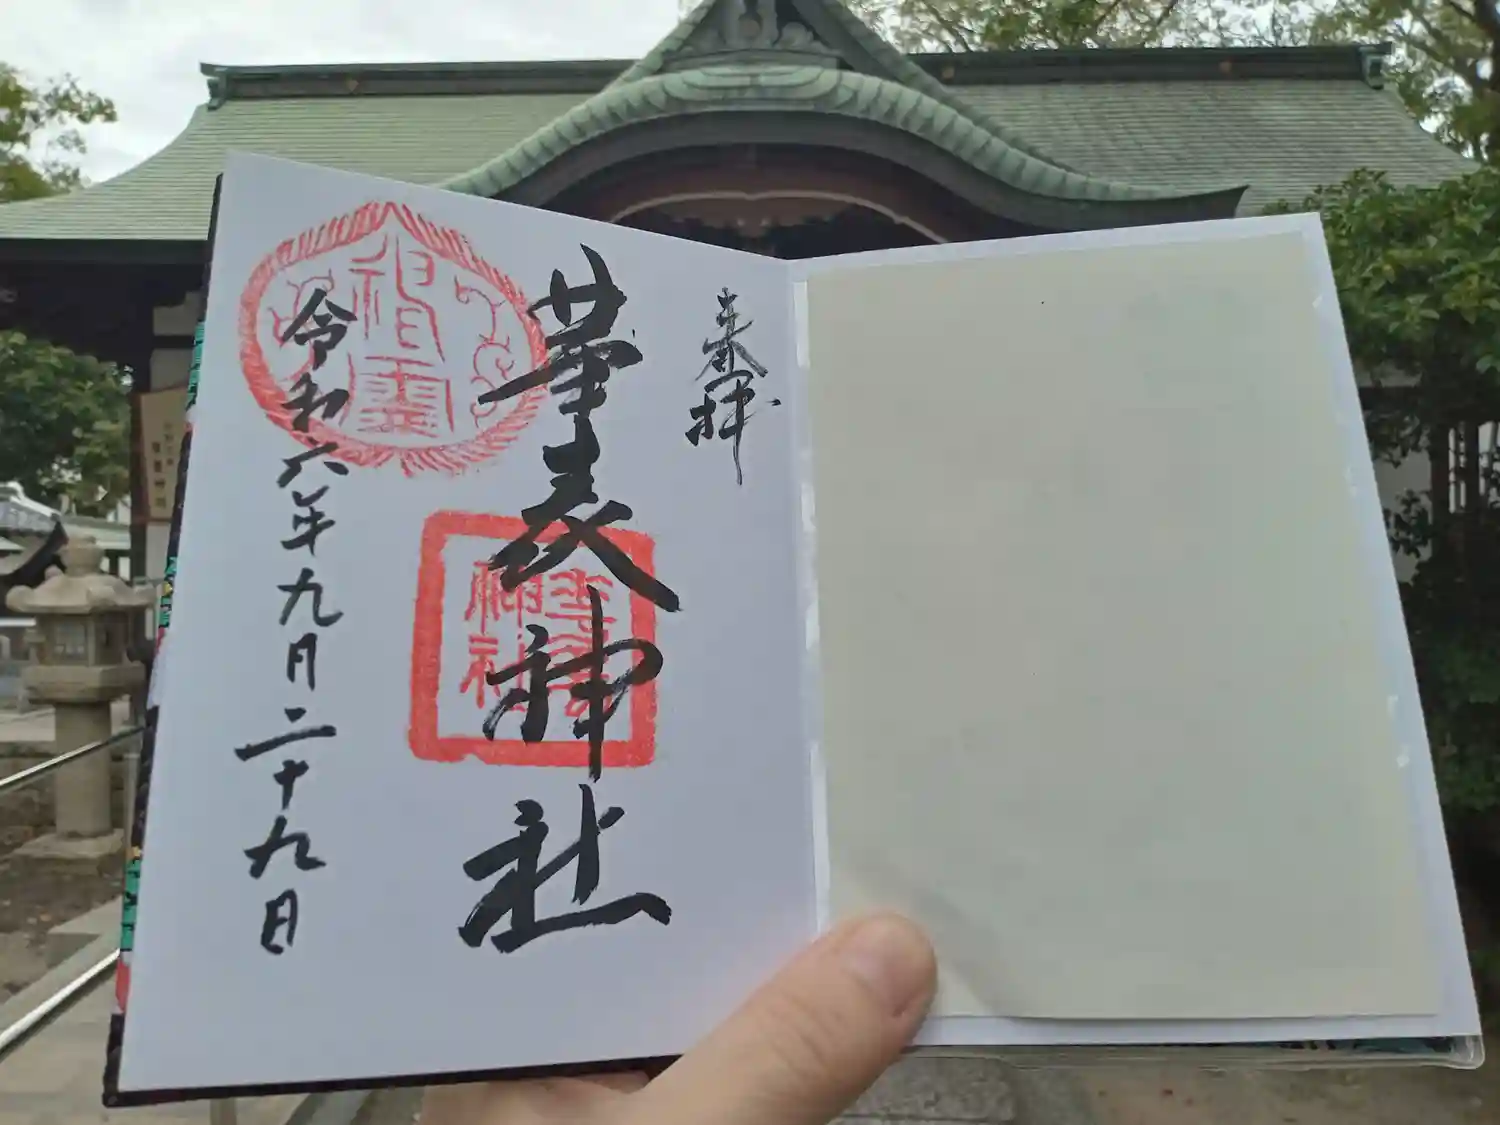 奉拝
華表神社
令和六年九月二十九日
祖霊
神社